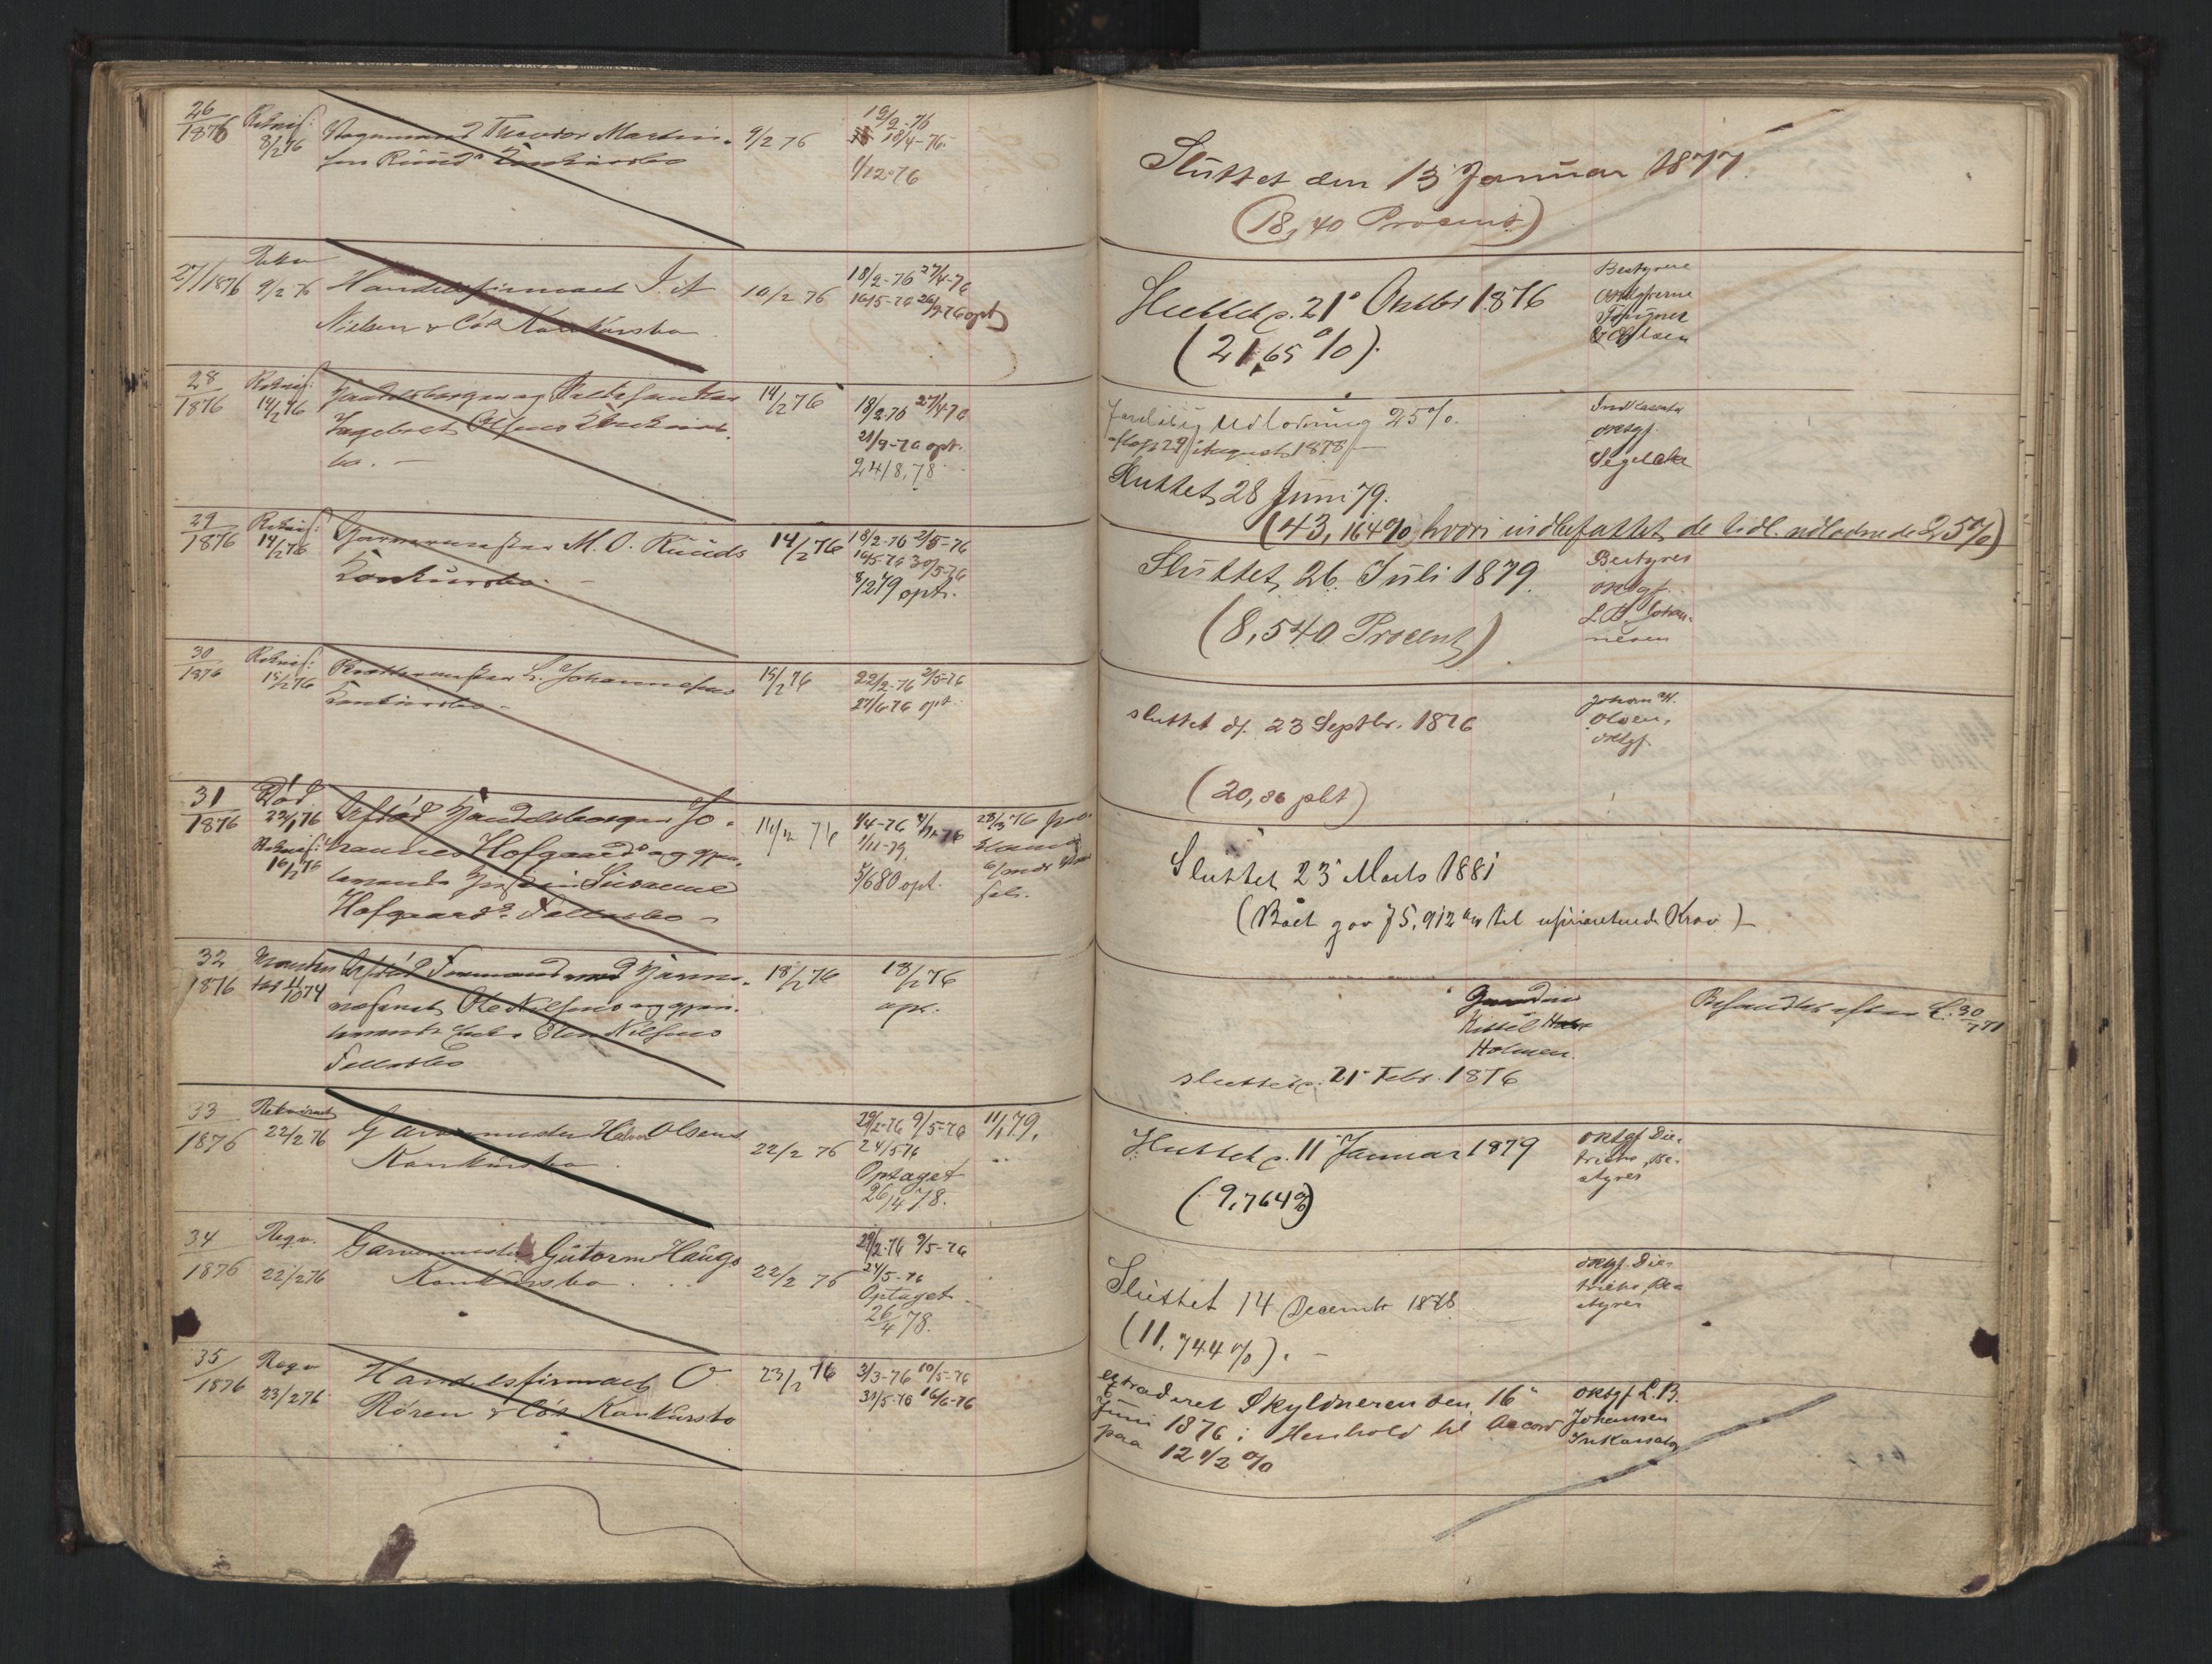 26
1876
Rekvis:
8/2 76
Vognmand Theodor Martin-
sen Ruuds Konkursbo
9/2 76
19/2-76
18/4-76
1/12-76
Sluttet den 13 Januar 1877.
(18,40 Procent)
27/1876
Rekv
9/2 76
Handelsfirmaet I. A
Nielsen & Co's Konkursbo
10/2 76
18/2-76 27/4-76
16/5-76 26/9 76 opt
Sluttet d. 21 Oktbr 1876
(21,65 %).
Bestyrere
orktgf
& Olsen
28
1876
Rekvis:
14/2 76
Handelsborger og
Ingebret Olsens Konkurs-
bo. —
14/2 76
18/2-76 27/4-76
21/9-76 opt.
24/8.78
Foreløbig Udlodning 25%.
29 August 1878
Sluttet 28 Juni 79.
(43,164% hvori indbefattet de tidl. udlodnede 25%)
Indkassator
orktgf.
Segelcke
29
1876
Rekvis:
14/2 76
Garvermester M. O. Ruuds
Konkursbo. —
14/2 76
18/2-76 2/5-76
16/5-76 30/5-76
8/2 79 opt.
Sluttet 26 Juli 1879.
(8,540 Procent)
Bestyrer
orktgf.
L. B. Johan-
nesen
30
1876
Rekvis:
15/2 76
L. Johannesens
Konkursbo —
15/2 76
22/2-76 2/5-76
27/6-76 opt
sluttet d. 23 Septbr. 1876
(20,86 pCt)
Johan H.
Olsen,
orktgf.
31
1876
Død
22/1 76
Rekvis:
16/2 76
Afdød Handelsborger Jo-
hannes Hofgaards og gjen-
levende Hustru Susanne
Hofgaards Fællesbo —
16/2 76
1/4-76
1/11-79
5/6 80 opt.
28/3 76
Sluttet 23 Marts 1881
(Boet gav 75,912 til uprioriterede Krav) —
32
1876
11/10 74
Afdød Formand ved Jern-
Ole Nilsens og gjen-
levende Enke Nilsens
Fællesbo
18/2 76
18/2 76
opt.
Kittel
Holmen.
sluttet d. 21 Febr. 1876
Behandlet efter L. 30/7 51
33
1876
Rekvireret
22/2 76
Garvermester Halvor Olsens
Konkursbo.
22/2 76
29/2-76 9/5-76
24/5 76
Optaget
26/4 78.
11/1 79.
Sluttet d. 11 Januar 1879
(9,764%)
orktgf. Die-
trichs, Be-
styrer
34
1876
Reqv.
22/2 76
Garvermester Gutorm Haugs
Konkursbo.
22/2 76
29/2-76 9/5-76
24/5-76
Optaget
26/4 78.
Sluttet 14 Decembr 1878
(11,744%). —
orktgf. Die-
trichs, Be-
styrer
35
1876
Reqv
23/2 76
Handelsfirmaet O
Røren & Co's Konkursbo
23/2 76
3/3-76 10/5-76
31/5-76 16/6-76
extraderet Skyldneren den 16
Juni 1876 i Henhold til Accord
paa 12 1/2 %
orktgf. L. B.
Johansen
Inkassator